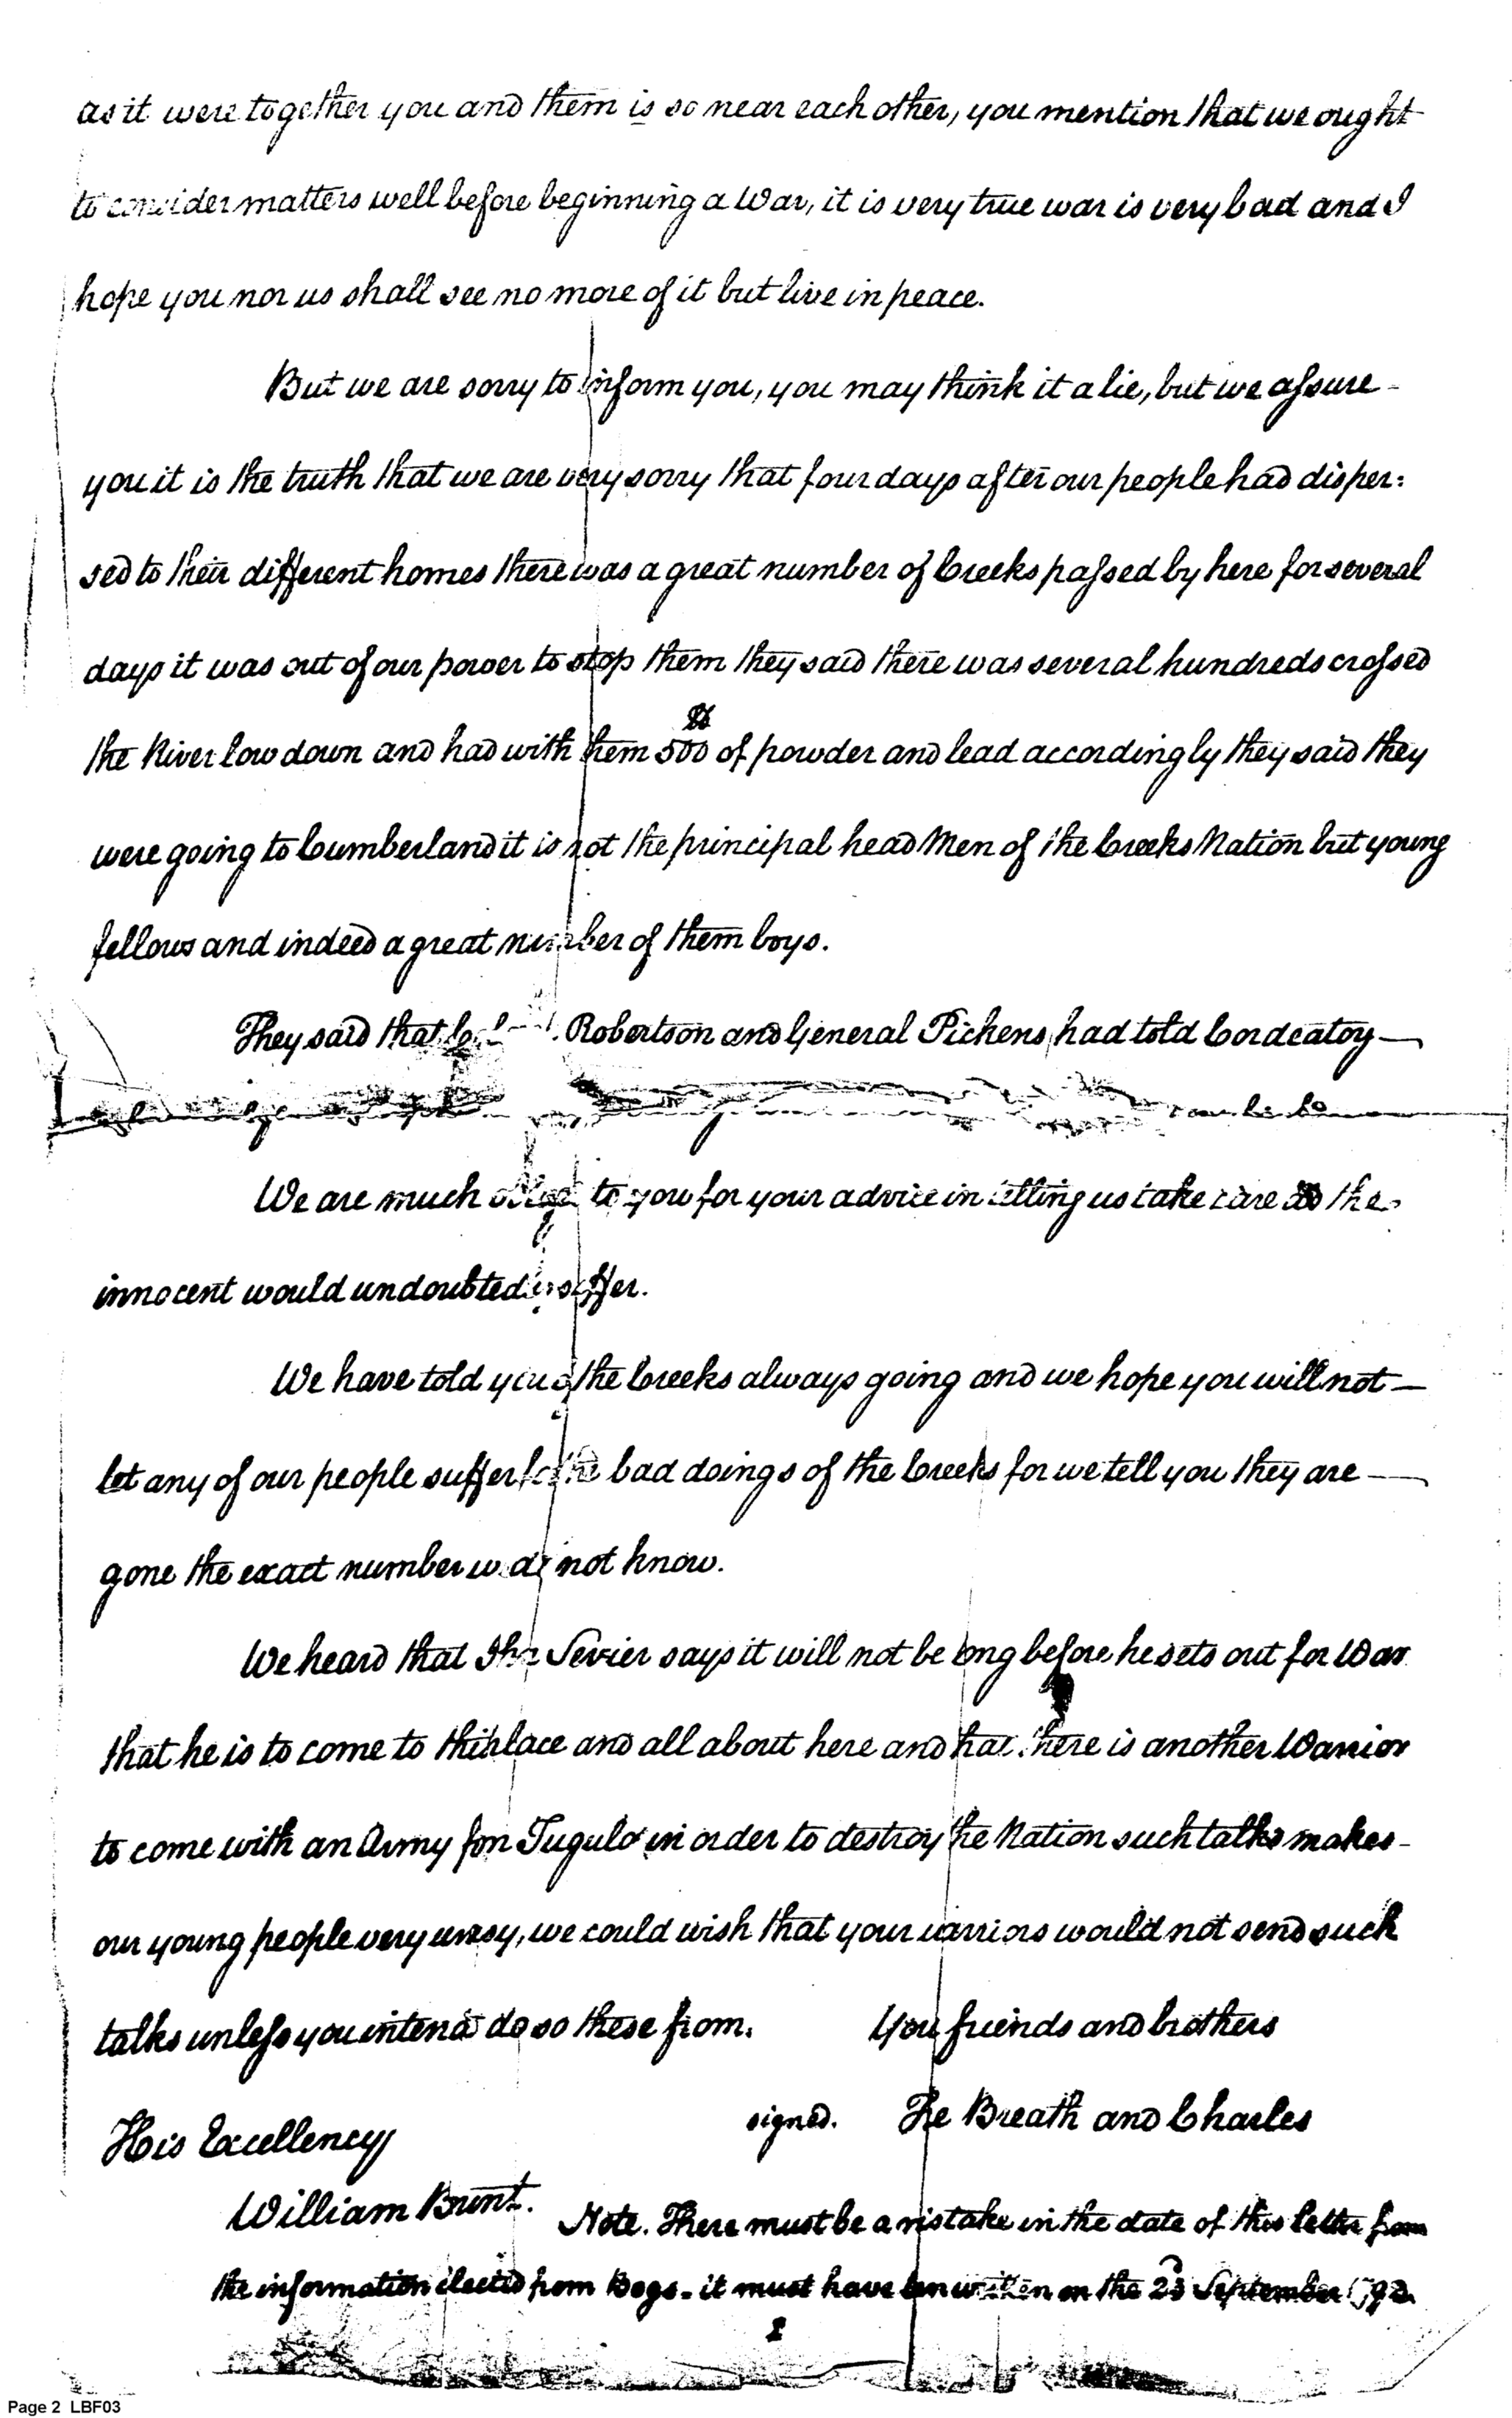 as it were together you and them is so near each other, you mention that we ought
to consider matters well before beginning a War, it is very true war is very bad and I
hope you nor us shall see no more of it but live in peace.
But we are sorry to inform you, you may think it a lie, but we assure -
you it is the truth that we are very sorry that four days after our people had disper:
sed to their different homes there was a great number of Creeks passed by here for several
days it was out of our power to stop them they said there was several hundreds crossed
the River low down and had with them 500 lb of powder and lead accordingly they said they
were going to Cumberland it is not the principal head Men of the Creeks Nation but young
fellows and indeed a great number of them boys.
They said that Robertson and General Pickens had told Cordeatoy —
We are much to you for your advice in telling us take care as the
innocent would undoubtedly suffer.
We have told you of the Creeks always going and we hope you will not —
let any of our people suffer for the bad doings of the Creeks for we tell you they are —
gone the exact number we do not know.
We heard that Jhn Sevier says it will not be long before he sets out for War
that he is to come to this place and all about here and that there is another Warrior
to come with an Army from Tugulo in order to destroy the Nation such talks makes -
our young people very uneasy, we could wish that your warriors would not send such
talks unless you intend do so these from. Your friends and brothers
signed. The Breath and Charles
His Excellency
William Blount. Note. There must be a mistake in the date of this letter from
the information from Bogs - it must have been written on the 23 September 1792
2
Page 2 LBF03